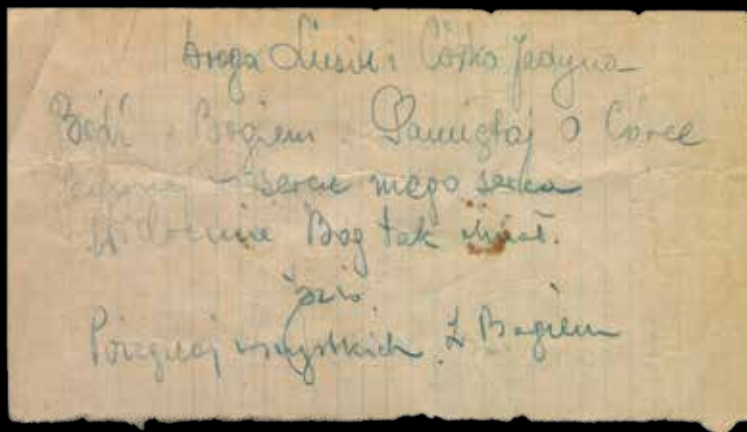 Droga Lusiu i Córko Jedyna
Bądź z Bogiem. Pamiętaj o Córce
Jedynej – serce mego serca
Widocznie Bóg tak chciał.
Pożegnaj wszystkich. Z Bogiem